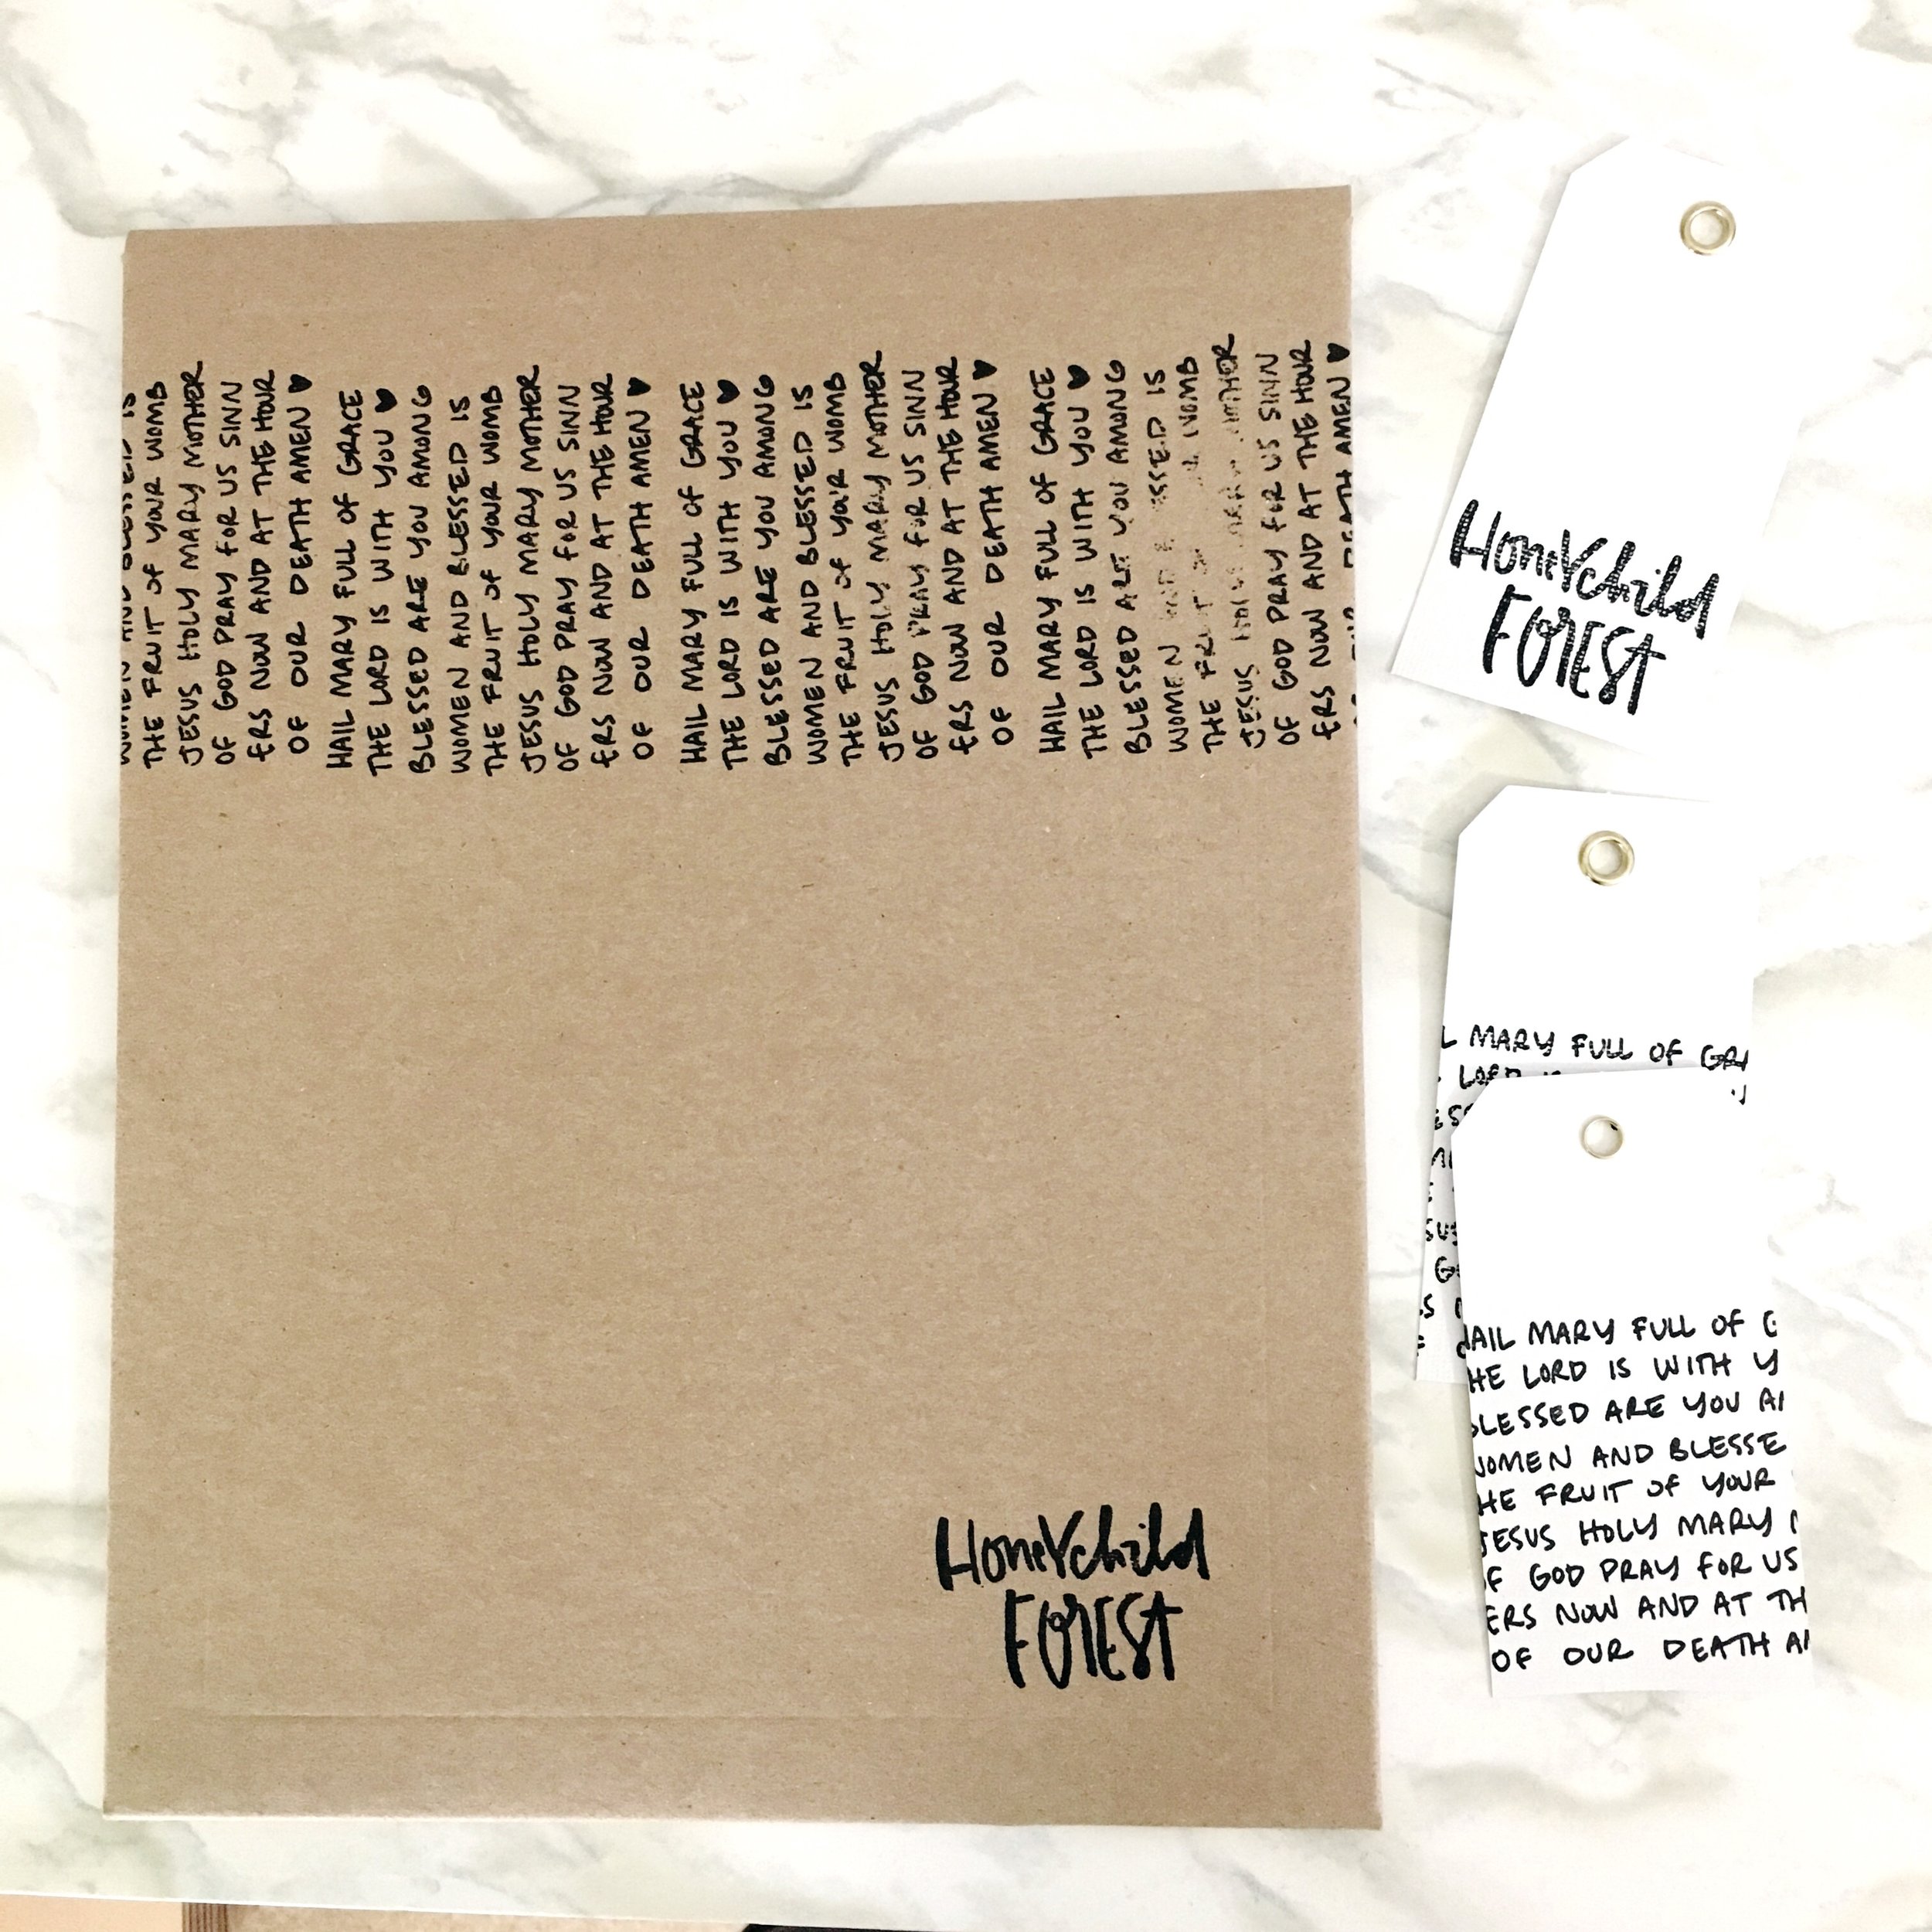 WOMEN AND BLESSED IS
THE FRUIT OF YOUR WOMB
JESUS HOLY MARY MOTHER
OF GOD PRAY FOR US SINN
ERS NOW AND AT THE HOUR
OF OUR DEATH AMEN ♥
HAIL MARY FULL OF GRACE
THE LORD IS WITH YOU ♥
BLESSED ARE YOU AMONG
WOMEN AND BLESSED IS
THE FRUIT OF YOUR WOMB
JESUS HOLY MARY MOTHER
OF GOD PRAY FOR US SINN
ERS NOW AND AT THE HOUR
OF OUR DEATH AMEN ♥
HAIL MARY FULL OF GRACE
THE LORD IS WITH YOU ♥
BLESSED ARE YOU AMONG
WOMEN AND BLESSED IS
THE FRUIT OF YOUR WOMB
JESUS HOLY MARY MOTHER
OF GOD PRAY FOR US SINN
ERS NOW AND AT THE HOUR
OF OUR DEATH AMEN ♥
HAIL MARY FULL OF GRACE
THE LORD IS WITH YOU ♥
BLESSED ARE YOU AMONG
WOMEN ESSED IS
THE FRUIT WOMB
JESUS MOTHER
OF GOD PRAY FOR US SINN
ERS NOW AND AT THE HOUR
DEATH AMEN ♥
HoneYchild
FOREST
HoneYchild
FOREST
L MARY FULL OF GRA
LORD
AIL MARY FULL OF G
HE LORD IS WITH Y
BLESSED ARE YOU A
WOMEN AND BLESSE
HE FRUIT OF YOUR
JESUS HOLY MARY
F GOD PRAY FOR US
ERS NOW AND AT TH
OF OUR DEATH A